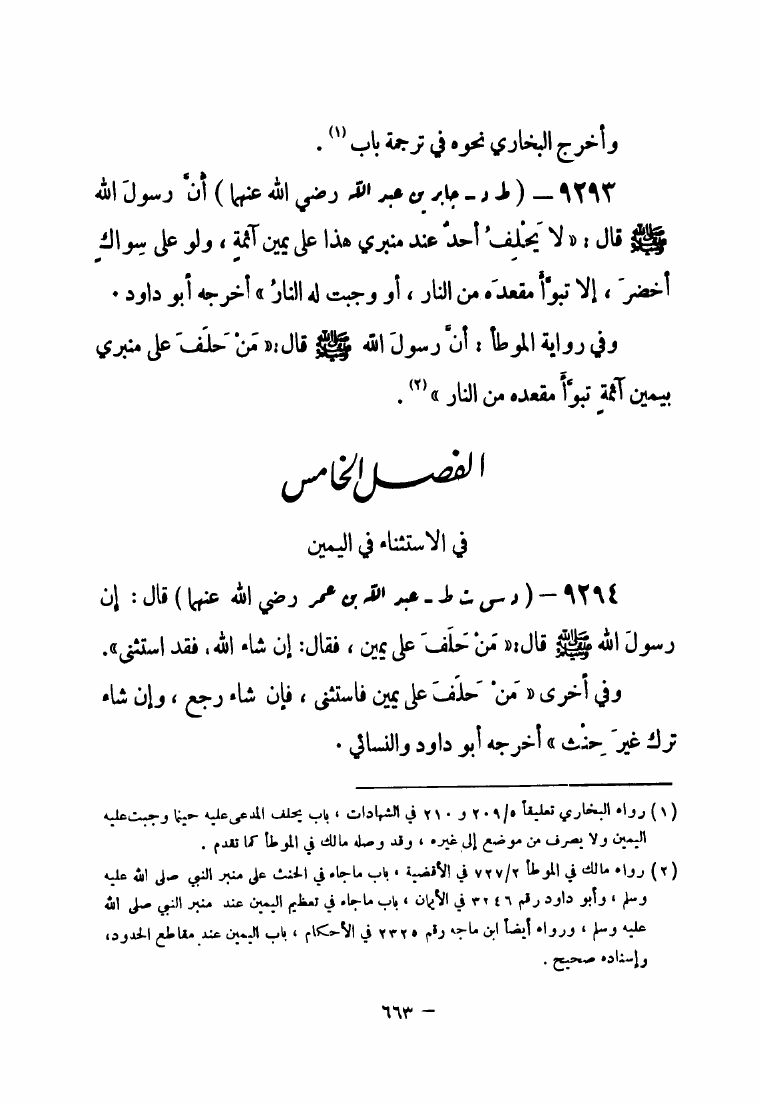 وأخرج البخاري نحوه في ترجمة باب (١) .
٩٢٩٣ – ( ط د - جابر بن عبد الله رضي الله عنهما ) أنَّ رسولَ الله
ﷺ قال : « لا يَحْلِفُ أحدٌ عند منبري هذا على يمين آثمةٍ ، ولو على سِواكٍ
أخضرَ ، إلا تبوَّأَ مقعدَه من النار ، أو وجبت له النارُ » أخرجه أبو داود .
وفي رواية الموطأ : أنَّ رسولَ الله ﷺ قال : « مَنْ حَلَفَ على منبري
بيمين آثمةٍ تبوَّأَ مقعده من النار » (٢) .
الفصل الخامس
في الاستثناء في اليمين
٩٢٩٤ – ( د س ت ط - عبد الله بن عمر رضي الله عنهما ) قال : إن
رسولَ الله ﷺ قال : « مَنْ حَلَفَ على يمين ، فقال : إن شاء الله ، فقد استثنى » .
وفي أخرى « مَنْ حَلَفَ على يمين فاستثنى ، فإن شاء رجع ، وإن شاء
ترك غيرَ حِنْث » أخرجه أبو داود والنسائي .
(١) رواه البخاري تعليقاً ٢٠٩/٥ و ٢١٠ في الشهادات ، باب يحلف المدعى عليه حيثما وجبت عليه
اليمين ولا يصرف من موضع إلى غيره ، وقد وصله مالك في الموطأ كما تقدم .
(٢) رواه مالك في الموطأ ٧٢٧/٢ في الأقضية ، باب ماجاء في الحنث على منبر النبي صلى الله عليه
وسلم ، وأبو داود رقم ٣٢٤٦ في الأيمان ، باب ماجاء في تعظيم اليمين عند منبر النبي صلى الله
عليه وسلم ، ورواه أيضاً ابن ماجه رقم ٢٣٢٥ في الأحكام ، باب اليمين عند مقاطع الحدود ،
وإسناده صحيح .
– ٦٦٣